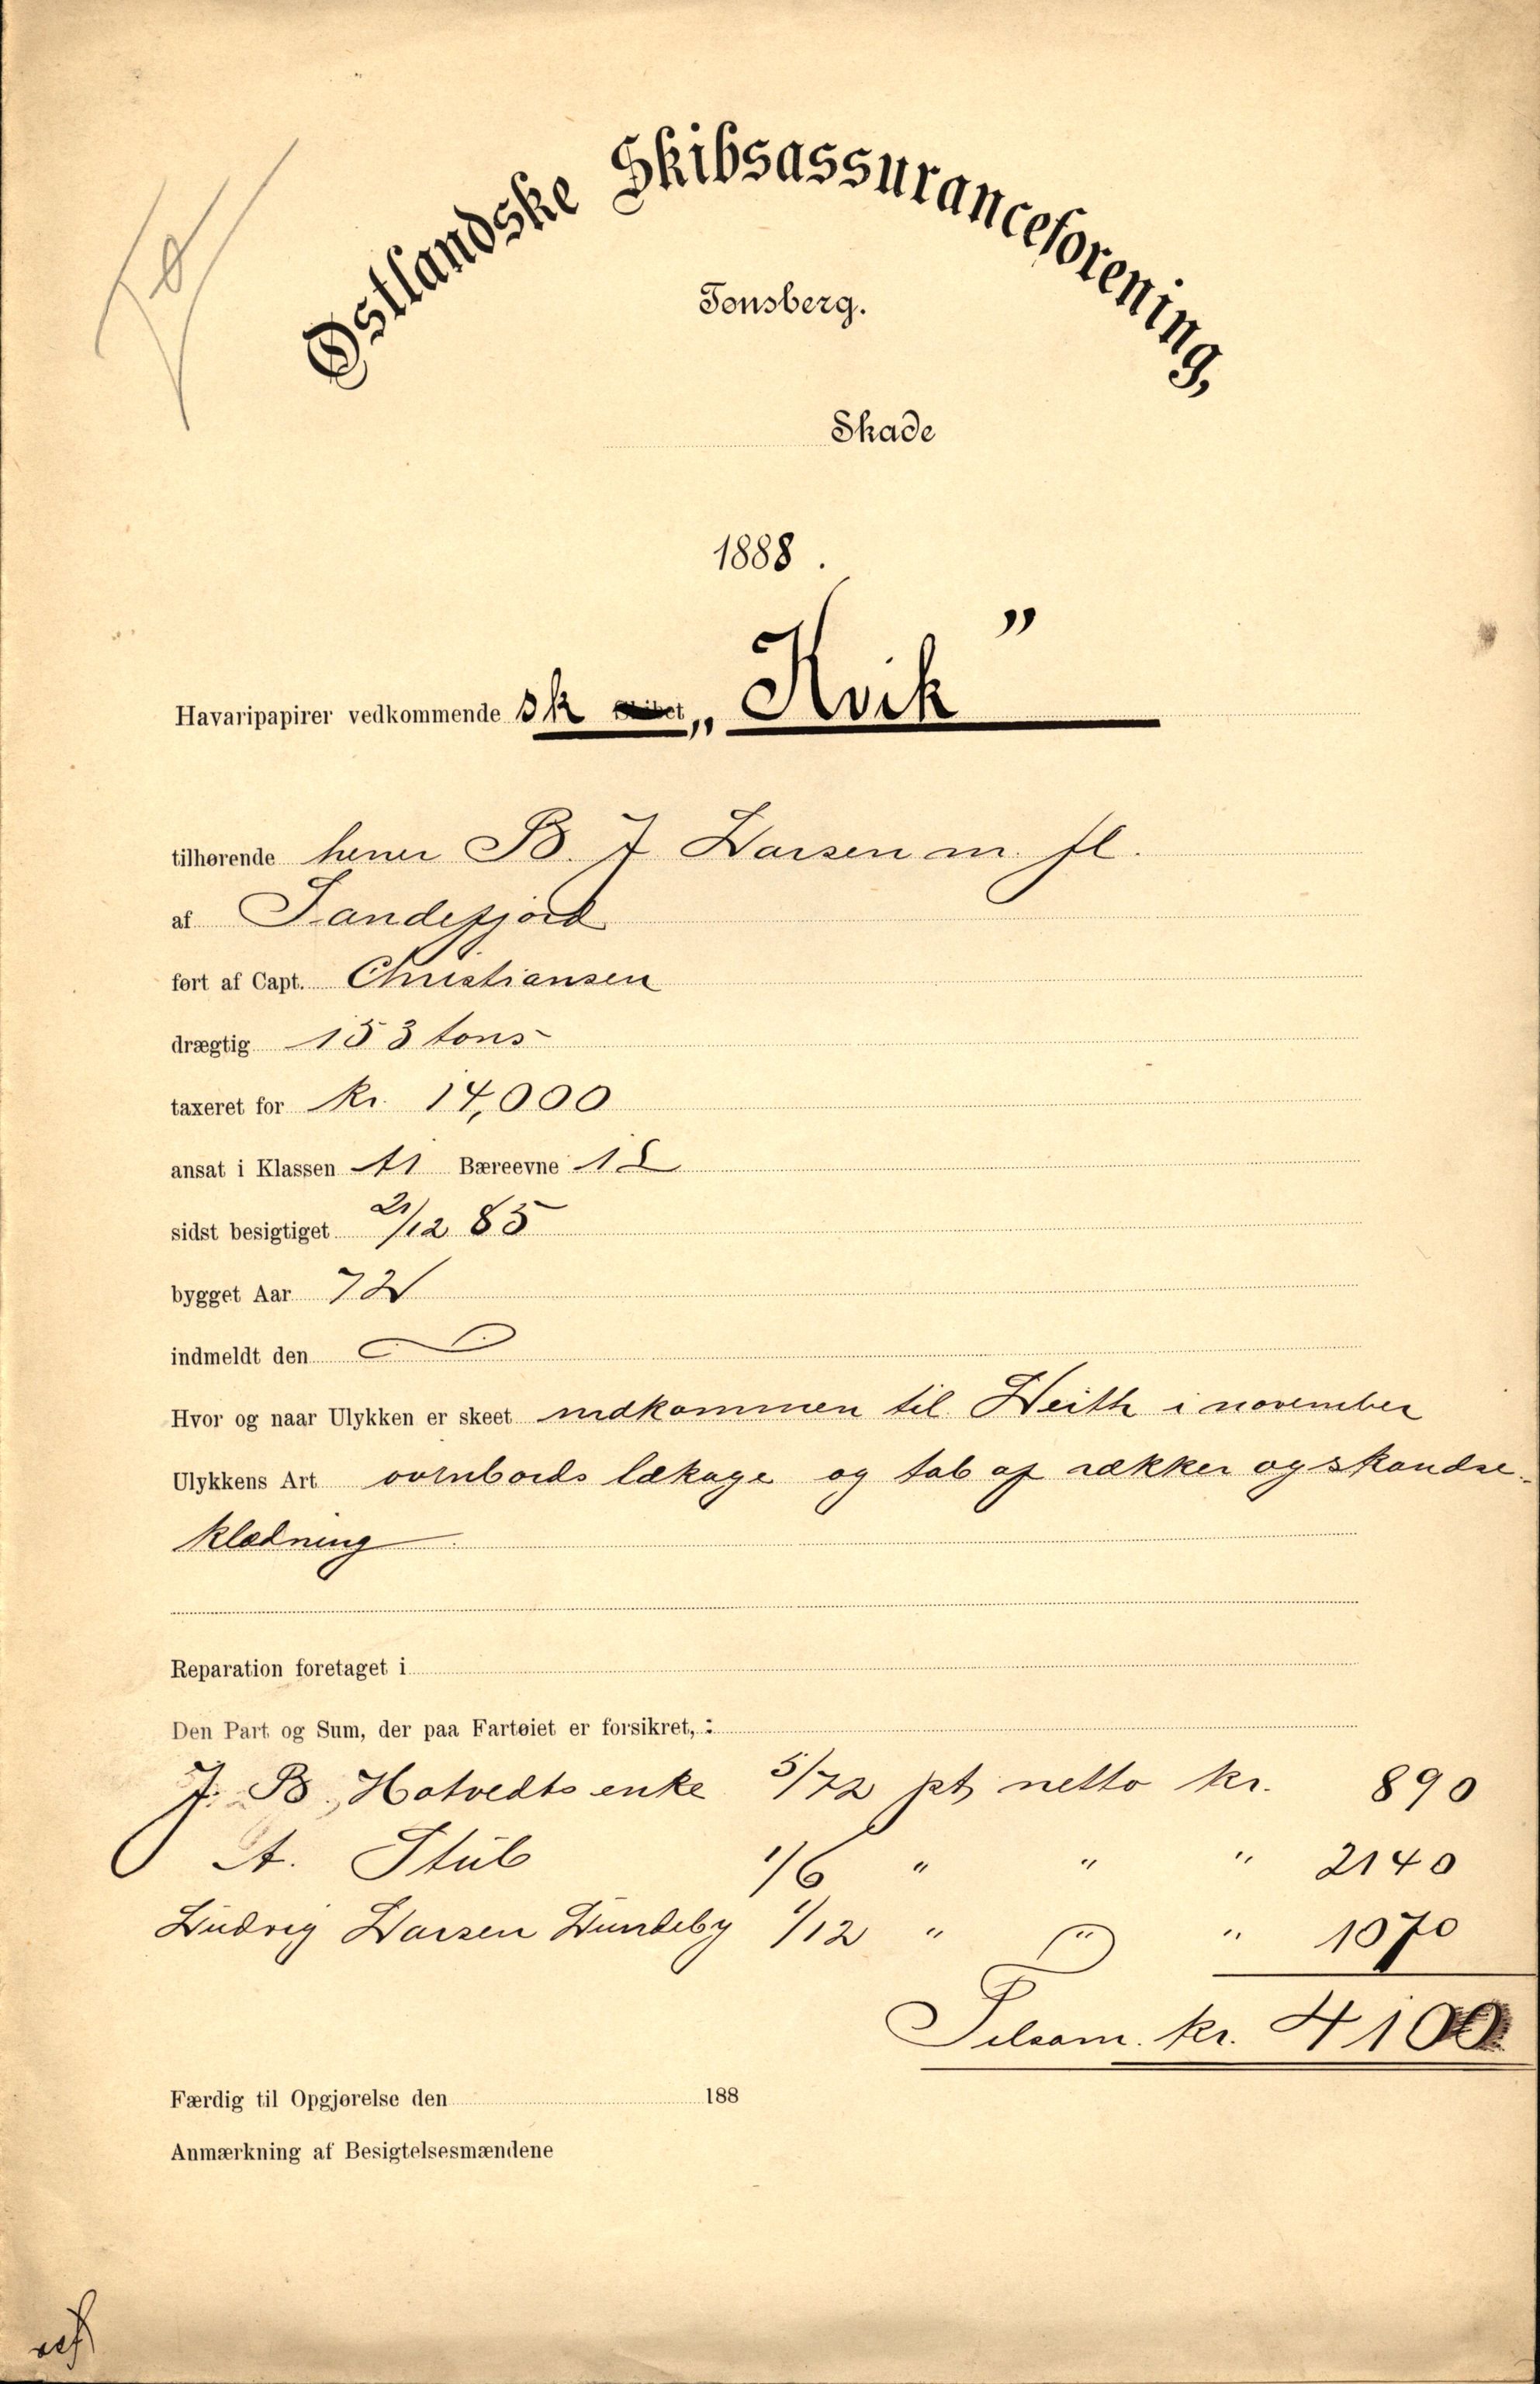 Østlandske Skibsassuranceforening,
Tønsberg.
Skade
1888.
Havaripapirer vedkommende sk Skibet „Kvik”
tilhørende herrer B. J Larsen m. fl.
af Sandefjord
ført af Capt. Christiansen
drægtig 153 tons
taxeret for kr. 14,000
ansat i Klassen A1 Bæreevne
sidst besigtiget 21/12 85
bygget Aar 72
indmeldt den
Hvor og naar Ulykken er skeet indkommen til Leith i november
Ulykkens Art ovenbords lækage og tab af rækker og skandse-
klædning
Reparation foretaget i
Den Part og Sum, der paa Fartøiet er forsikret, :
J. B. Hotvedts enke 5/72 pt netto kr. 890
A. Stub 1/6 " " " 2140
Ludvig Larsen Lundeby 1/12 " " " 1070
Tilsam. kr. 4100
Færdig til Opgjørelse den 188
Anmærkning af Besigtelsesmændene